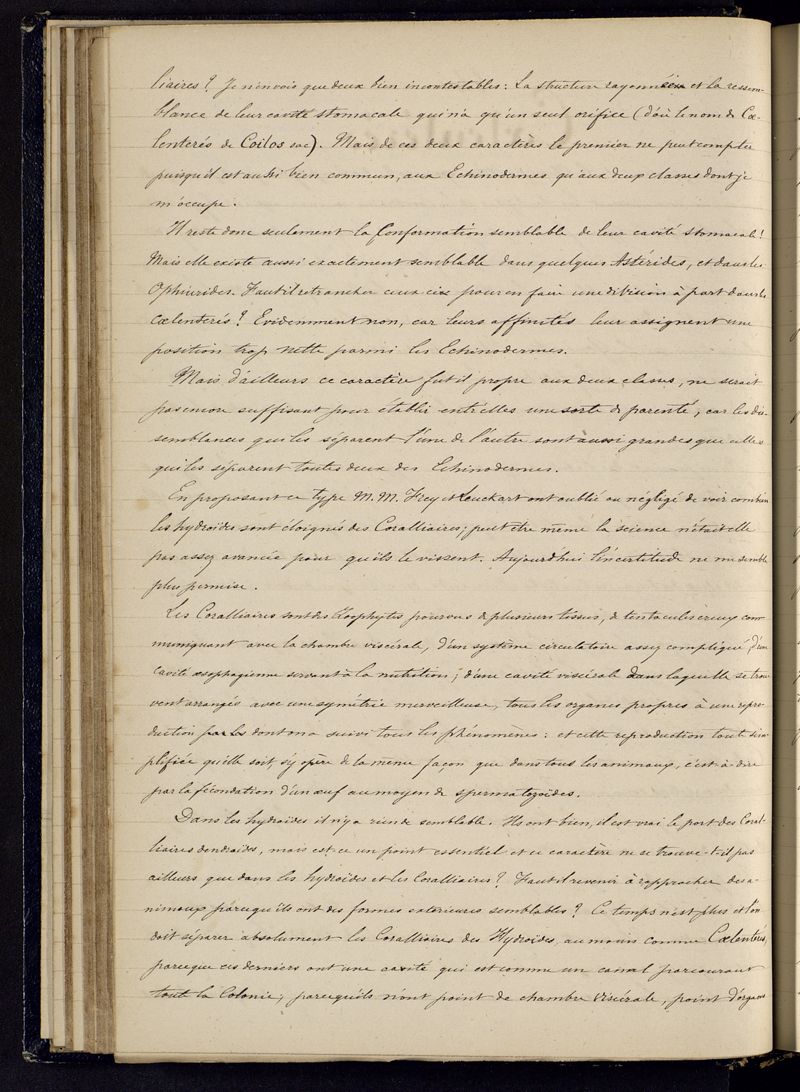 liaires? Je n'en vois que deux bien incontestables: La structure rayonnée et la ressem-
blance de leur cavité stomacale qui n'a qu'un seul orifice (d'où le nom de Cœ-
lenterés de Coilos sac). Mais de ces deux caractères le premier ne peut compter
puisqu'il est aussi bien commun, aux Echinodermes qu'aux deux classes dont je
m'occupe.
Il reste donc seulement la Conformation semblable de leur cavité stomacale!
Mais elle existe aussi exactement semblable dans quelques Astérides, et dans les
Ophiurides. Faut il retrancher ceux ci pour en faire une division à part dans les
cœlenterés? Evidemment non, car leurs affinités leur assignent une
position trop nette parmi les Echinodermes.
Mais d'ailleurs ce caractère fut il propre aux deux classes, ne serait
pas encore suffisant pour établir entr'elles une sorte de parenté, car les dis-
semblances qui les séparent l'une de l'autre sont aussi grandes que celles
qui les séparent toutes deux des Echinodermes.
En proposant ce type M.M. Frey et Leuckart ont oublié ou négligé de voir combien
les hydroïdes sont éloignés des Coralliaires; peut etre même la science n'était elle
pas assez avancée pour qu'ils le vissent. Aujourd'hui l'incertitude ne me semble
plus permise.
Les Coralliaires sont des Zoophytes pourvus de plusieurs tissus, de tentacules creux com-
muniquant avec la chambre viscérale, d'un système circulatoire assez compliqué, d'une
cavité œsophagienne servant à la nutrition; d'une cavité viscérale dans laquelle se trou-
vent arrangés avec une symétrie merveilleuse, tous les organes propres à une repro-
duction dont on a suivi tous les phénomènes: et cette reproduction toute sim-
plifiée qu'elle soit, s'y opère de la meme façon que dans tous les animaux, c'est-à-dire
par la fécondation d'un œuf au moyen de spermatozoïdes.
Dans les hydroïdes il n'y a rien de semblable. Ils ont bien, il est vrai le port des Coral-
liaires dendroïdes, mais est ce un point essentiel et ce caractère ne se trouve-t-il pas
ailleurs que dans les hydroïdes et les Coralliaires? Faut il revenir à rapprocher des a-
nimaux parcequ'ils ont des formes exterieures semblables? Ce temps n'est plus et l'on
doit séparer absolument les Coralliaires des Hydroïdes, au moins comme Cœlentérés,
parceque ces derniers ont une cavité qui est comme un canal parcourant
toute la Colonie, parcequ'ils n'ont point de chambre viscérale, point d'organes